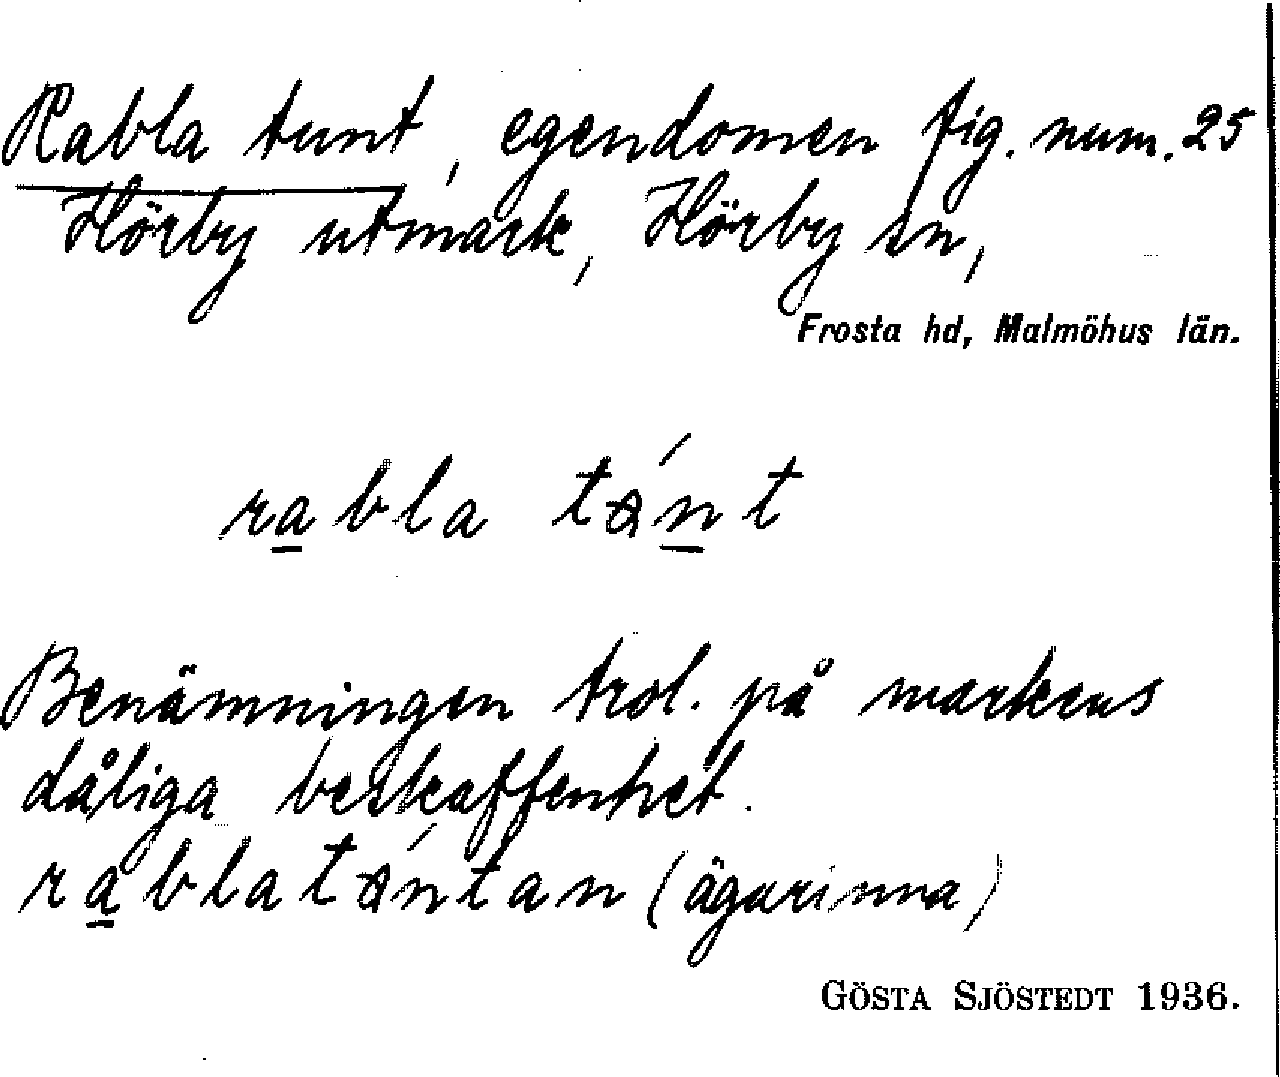 Rabla tunt, egendomen fig. num. 25
Hörby utmark, Hörby sn,
Frosta hd, Malmöhus län.
rabla tánt
Benämningen trol. på markens
dåliga beskaffenhet.
rablatántan (ägarinna)
GÖSTA SJÖSTEDT 1936.